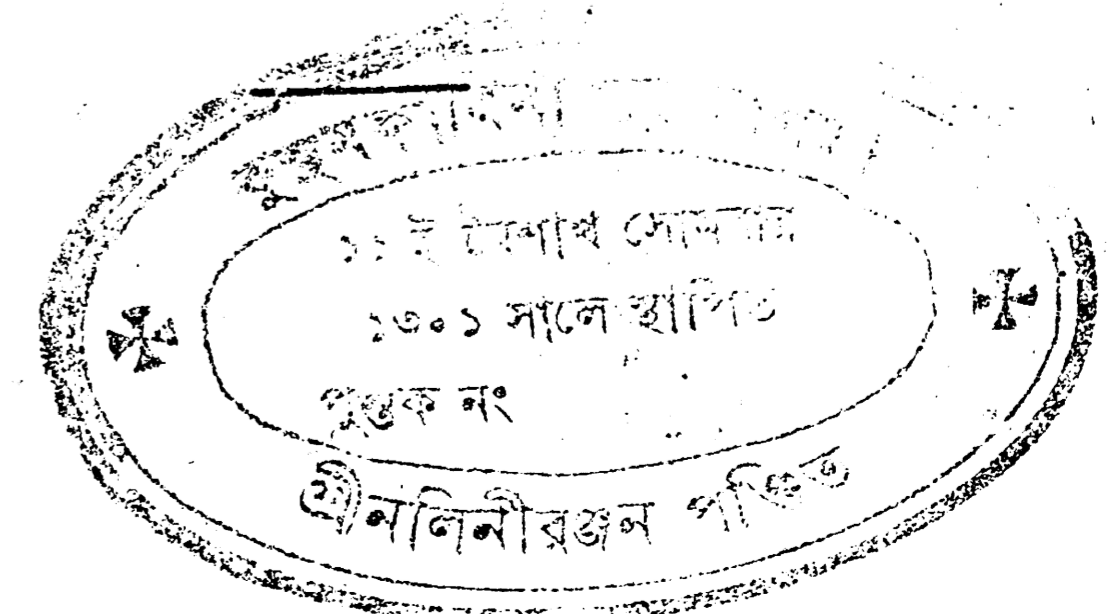 ১১ ই বৈশাখ সোমবার
১৩০১ সালে স্থাপিত
পুস্তক নং
শ্রীনলিনীরঞ্জন পণ্ডিত